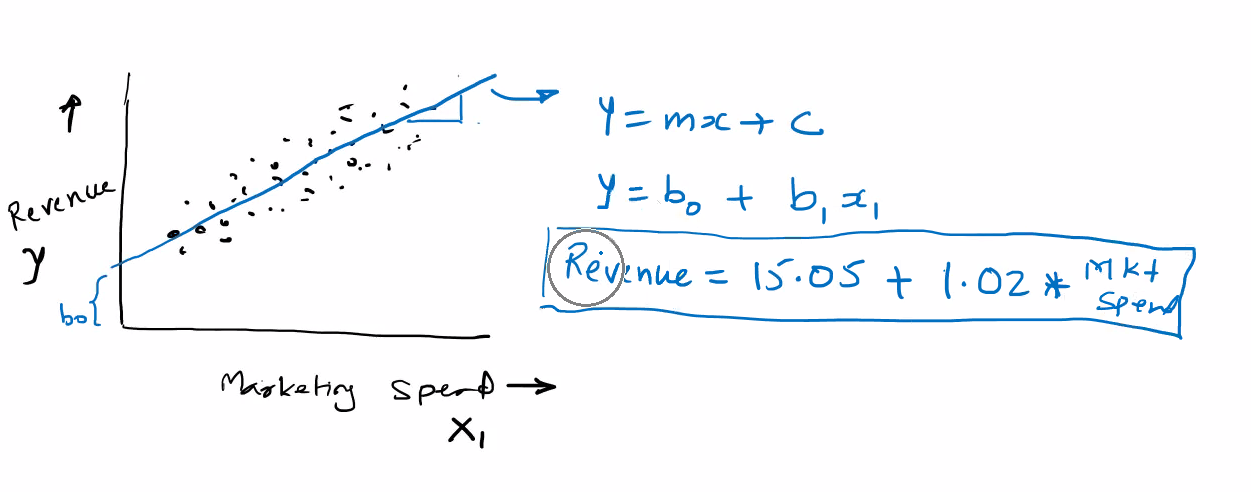 Revenue
y
b0
Marketing Spend →
X1
y = mx + c
y = b0 + b1 x1
Revenue = 15.05 + 1.02 * Mkt Spend